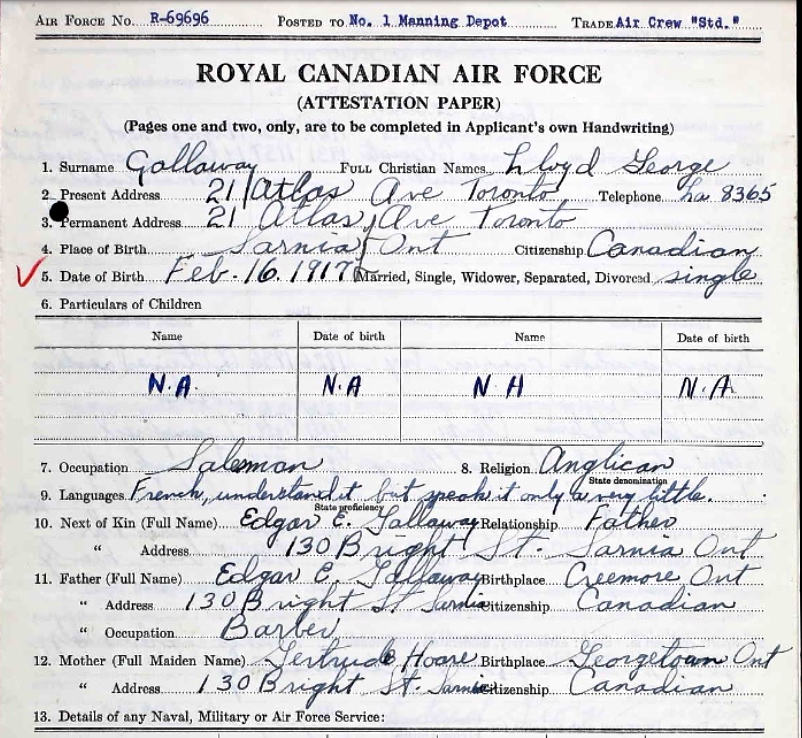 AIR FORCE No. R-69696 POSTED TO No. 1 Manning Depot TRADE Air Crew "Std."
ROYAL CANADIAN AIR FORCE
(ATTESTATION PAPER)
(Pages one and two, only, are to be completed in Applicant's own Handwriting)
1. Surname Gallaway FULL Christian Names Lloyd George
2. Present Address 21 Atlas Ave Toronto Telephone Ha 8365
3. Permanent Address 21 Atlas Ave Toronto
4. Place of Birth Sarnia, Ont Citizenship Canadian
5. Date of Birth Feb. 16. 1917 Married, Single, Widower, Separated, Divorced single
6. Particulars of Children
Name Date of birth Name Date of birth
N.A. N.A N A N.A.
7. Occupation Salesman 8. Religion Anglican
State denomination
9. Languages French, understand it but speak it only a very little.
State proficiency
10. Next of Kin (Full Name) Edgar E. Gallaway Relationship Father
" Address 130 Bright St. Sarnia Ont
11. Father (Full Name) Edgar E. Gallaway Birthplace Creemore Ont
" Address 130 Bright St Sarnia Citizenship Canadian
" Occupation Barber
12. Mother (Full Maiden Name) Gertrude Hoare Birthplace Georgetown Ont
" Address 130 Bright St. Sarnia Citizenship Canadian
13. Details of any Naval, Military or Air Force Service: